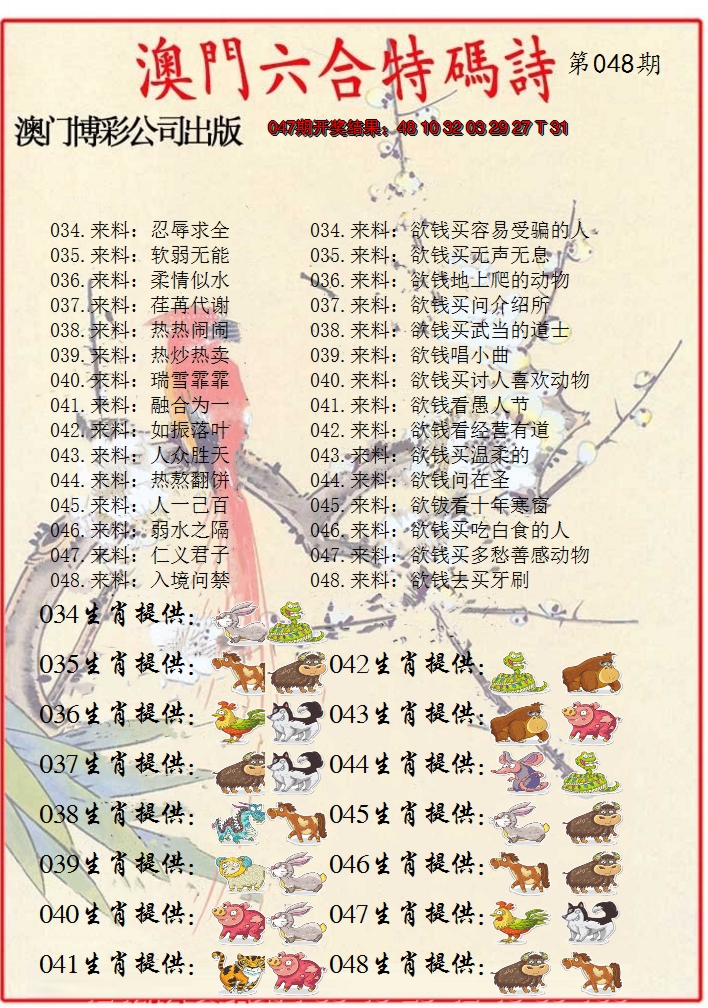 澳門六合特碼詩 第048期
澳门博彩公司出版 047期开奖结果：48 10 32 03 29 27 T 31
034.来料：忍辱求全 034.来料：欲钱买容易受骗的人
035.来料：软弱无能 035.来料：欲钱买无声无息
036.来料：柔情似水 036.来料：欲钱地上爬的动物
037.来料：荏苒代谢 037.来料：欲钱买问介绍所
038.来料：热热闹闹 038.来料：欲钱买武当的道士
039.来料：热炒热卖 039.来料：欲钱唱小曲
040.来料：瑞雪霏霏 040.来料：欲钱买讨人喜欢动物
041.来料：融合为一 041.来料：欲钱看愚人节
042.来料：如振落叶 042.来料：欲钱看经营有道
043.来料：人众胜天 043.来料：欲钱买温柔的
044.来料：热熬翻饼 044.来料：欲钱问在圣
045.来料：人一己百 045.来料：欲钹看十年寒窗
046.来料：弱水之隔 046.来料：欲钱买吃白食的人
047.来料：仁义君子 047.来料：欲钱买多愁善感动物
048.来料：入境问禁 048.来料：欲钱去买牙刷
034生肖提供：
035生肖提供： 042生肖提供：
036生肖提供： 043生肖提供：
037生肖提供： 044生肖提供：
038生肖提供： 045生肖提供：
039生肖提供： 046生肖提供：
040生肖提供： 047生肖提供：
041生肖提供： 048生肖提供：